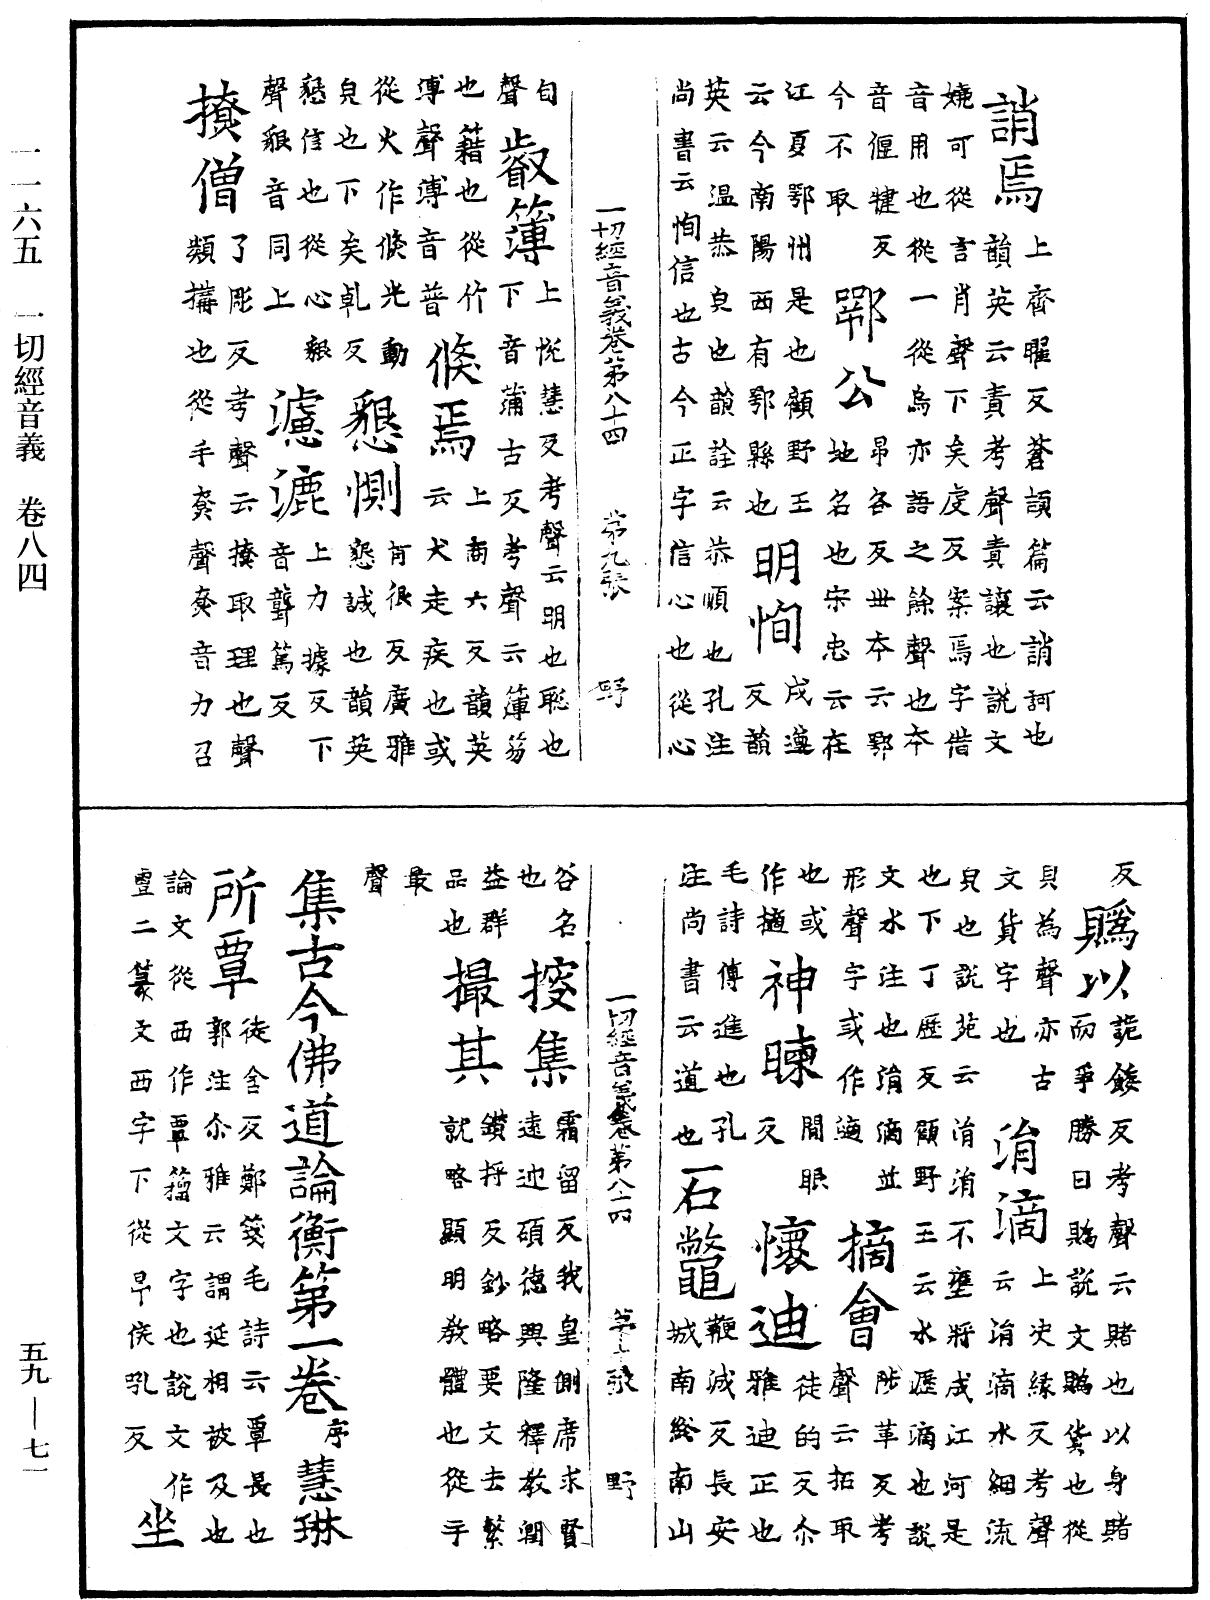 一一六五　一切經音義　卷八四
誚焉　上齊曜反蒼頡篇云誚訶也
韻英云責考聲責讓也說文
嬈可從言肖聲下矣虔反案焉字借
音用也從一從烏亦語之餘聲也本
音偃犍反　鄂公　昂各反世本云鄂
今不取　地名也宋忠云在
江夏鄂州是也顧野王　戍遵
云今南陽西有鄂縣也　明恂　反韻
英云温恭皃也韻詮云恭順也孔注
尚書云恂信也古今正字信心也從心
一切經音義卷第八十四　第九張　野
旬聲　叡簿　上悅慧反考聲云明也聡也
下音蒲古反考聲云簿笏
也籍也從竹　倏焉　上商六反韻英
溥聲溥音普　云犬走疾也或
從火作倏光動　懇惻　肎很反廣雅
皃也下矣乹反　懇誠也韻英
懇信也從心貇　濾漉　上力據反下
聲貇音同上　音聾篤反
撩僧　了彫反考聲云撩取理也聲
類撝也從手尞聲尞音力召
反　賵以　詭餧反考聲云賭也以身賭
而爭勝曰賵說文賵貲也從
貝為聲亦古　涓滴　上决緣反考聲
文貨字也　云涓滴水細流
皃也說苑云涓涓不壅將成江河是
也下丁歷反顧野王云水瀝滴也說
文水注也涓滴並　摘會　陟革反考
形聲字或作㴾　聲云拓取
也或作擿　神暕　閒眼反　懷迪　徒的反尒
雅迪正也
毛詩傳進也孔　石鼈　鞭滅反長安
注尚書云道也　城南終南山
一切經音義卷第八十四　第十張　野
谷名也　搜集　霜留反我皇側席求賢
遠迎碩德興隆釋教潤
益群品也　撮其　鑽捋反鈔略要文去繁
就略顯明教體也從手
最聲
集古今佛道論衡第一卷　序　慧琳
所覃　徒含反鄭箋毛詩云覃長也
郭注尒雅云謂延相被及也
論文從西作覃籀文字也說文作
二篆文西字下從㫗侯吼反　坐
五九—七一